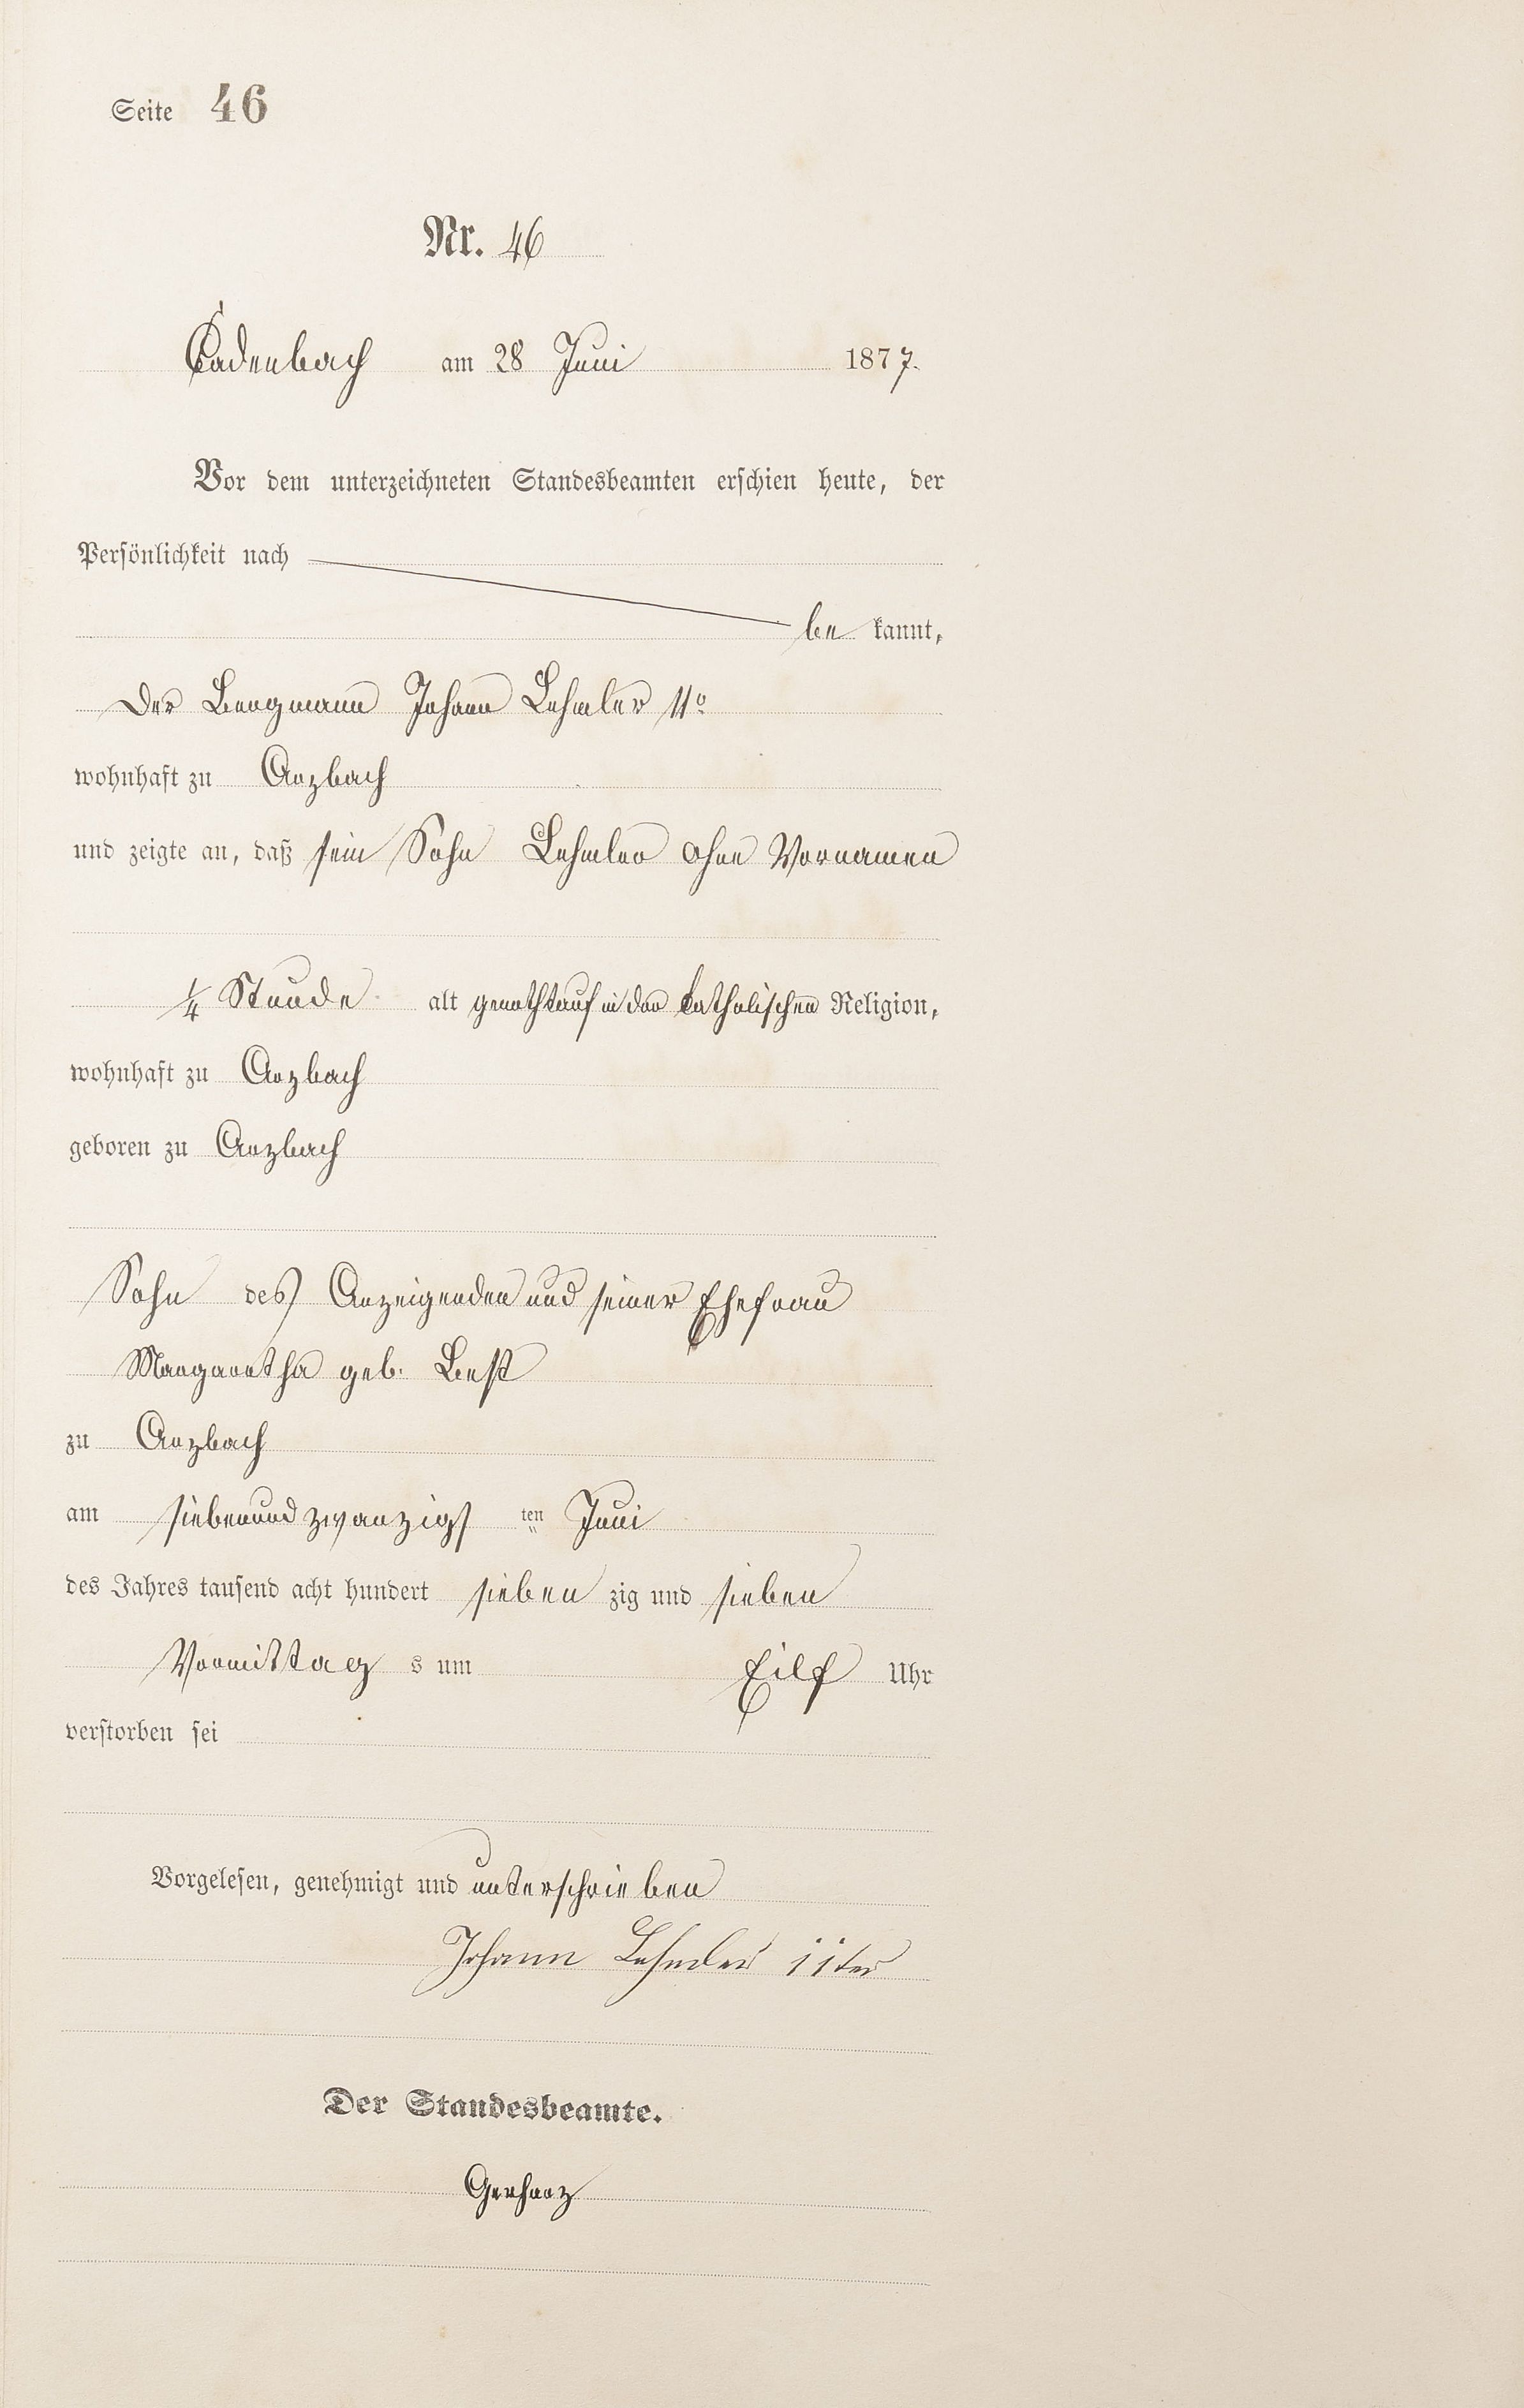 Seite 46
Nr. 46
Cadenbach am 28 Juni 1877.
Vor dem unterzeichneten Standesbeamten erschien heute, der
Persönlichkeit nach
be kannt,
Der Bergmann Johann Lehmler IIr
wohnhaft zu Arzbach
und zeigte an, daß sein Sohn Lehmler ohne Vornamen
1/4 Stunde alt genothtauf in der katholischen Religion,
wohnhaft zu Arzbach
geboren zu Arzbach
Sohn des Anzeigenden und seiner Ehefrau
Margaretha geb. Best
zu Arzbach
am siebenundzwanzigs ten Juni
des Jahres tausend acht hundert sieben zig und sieben
Vormittag s um Eilf Uhr
verstorben sei
Vorgelesen, genehmigt und unterschrieben
Johann Lehmler iiter
Der Standesbeamte.
Gerharz